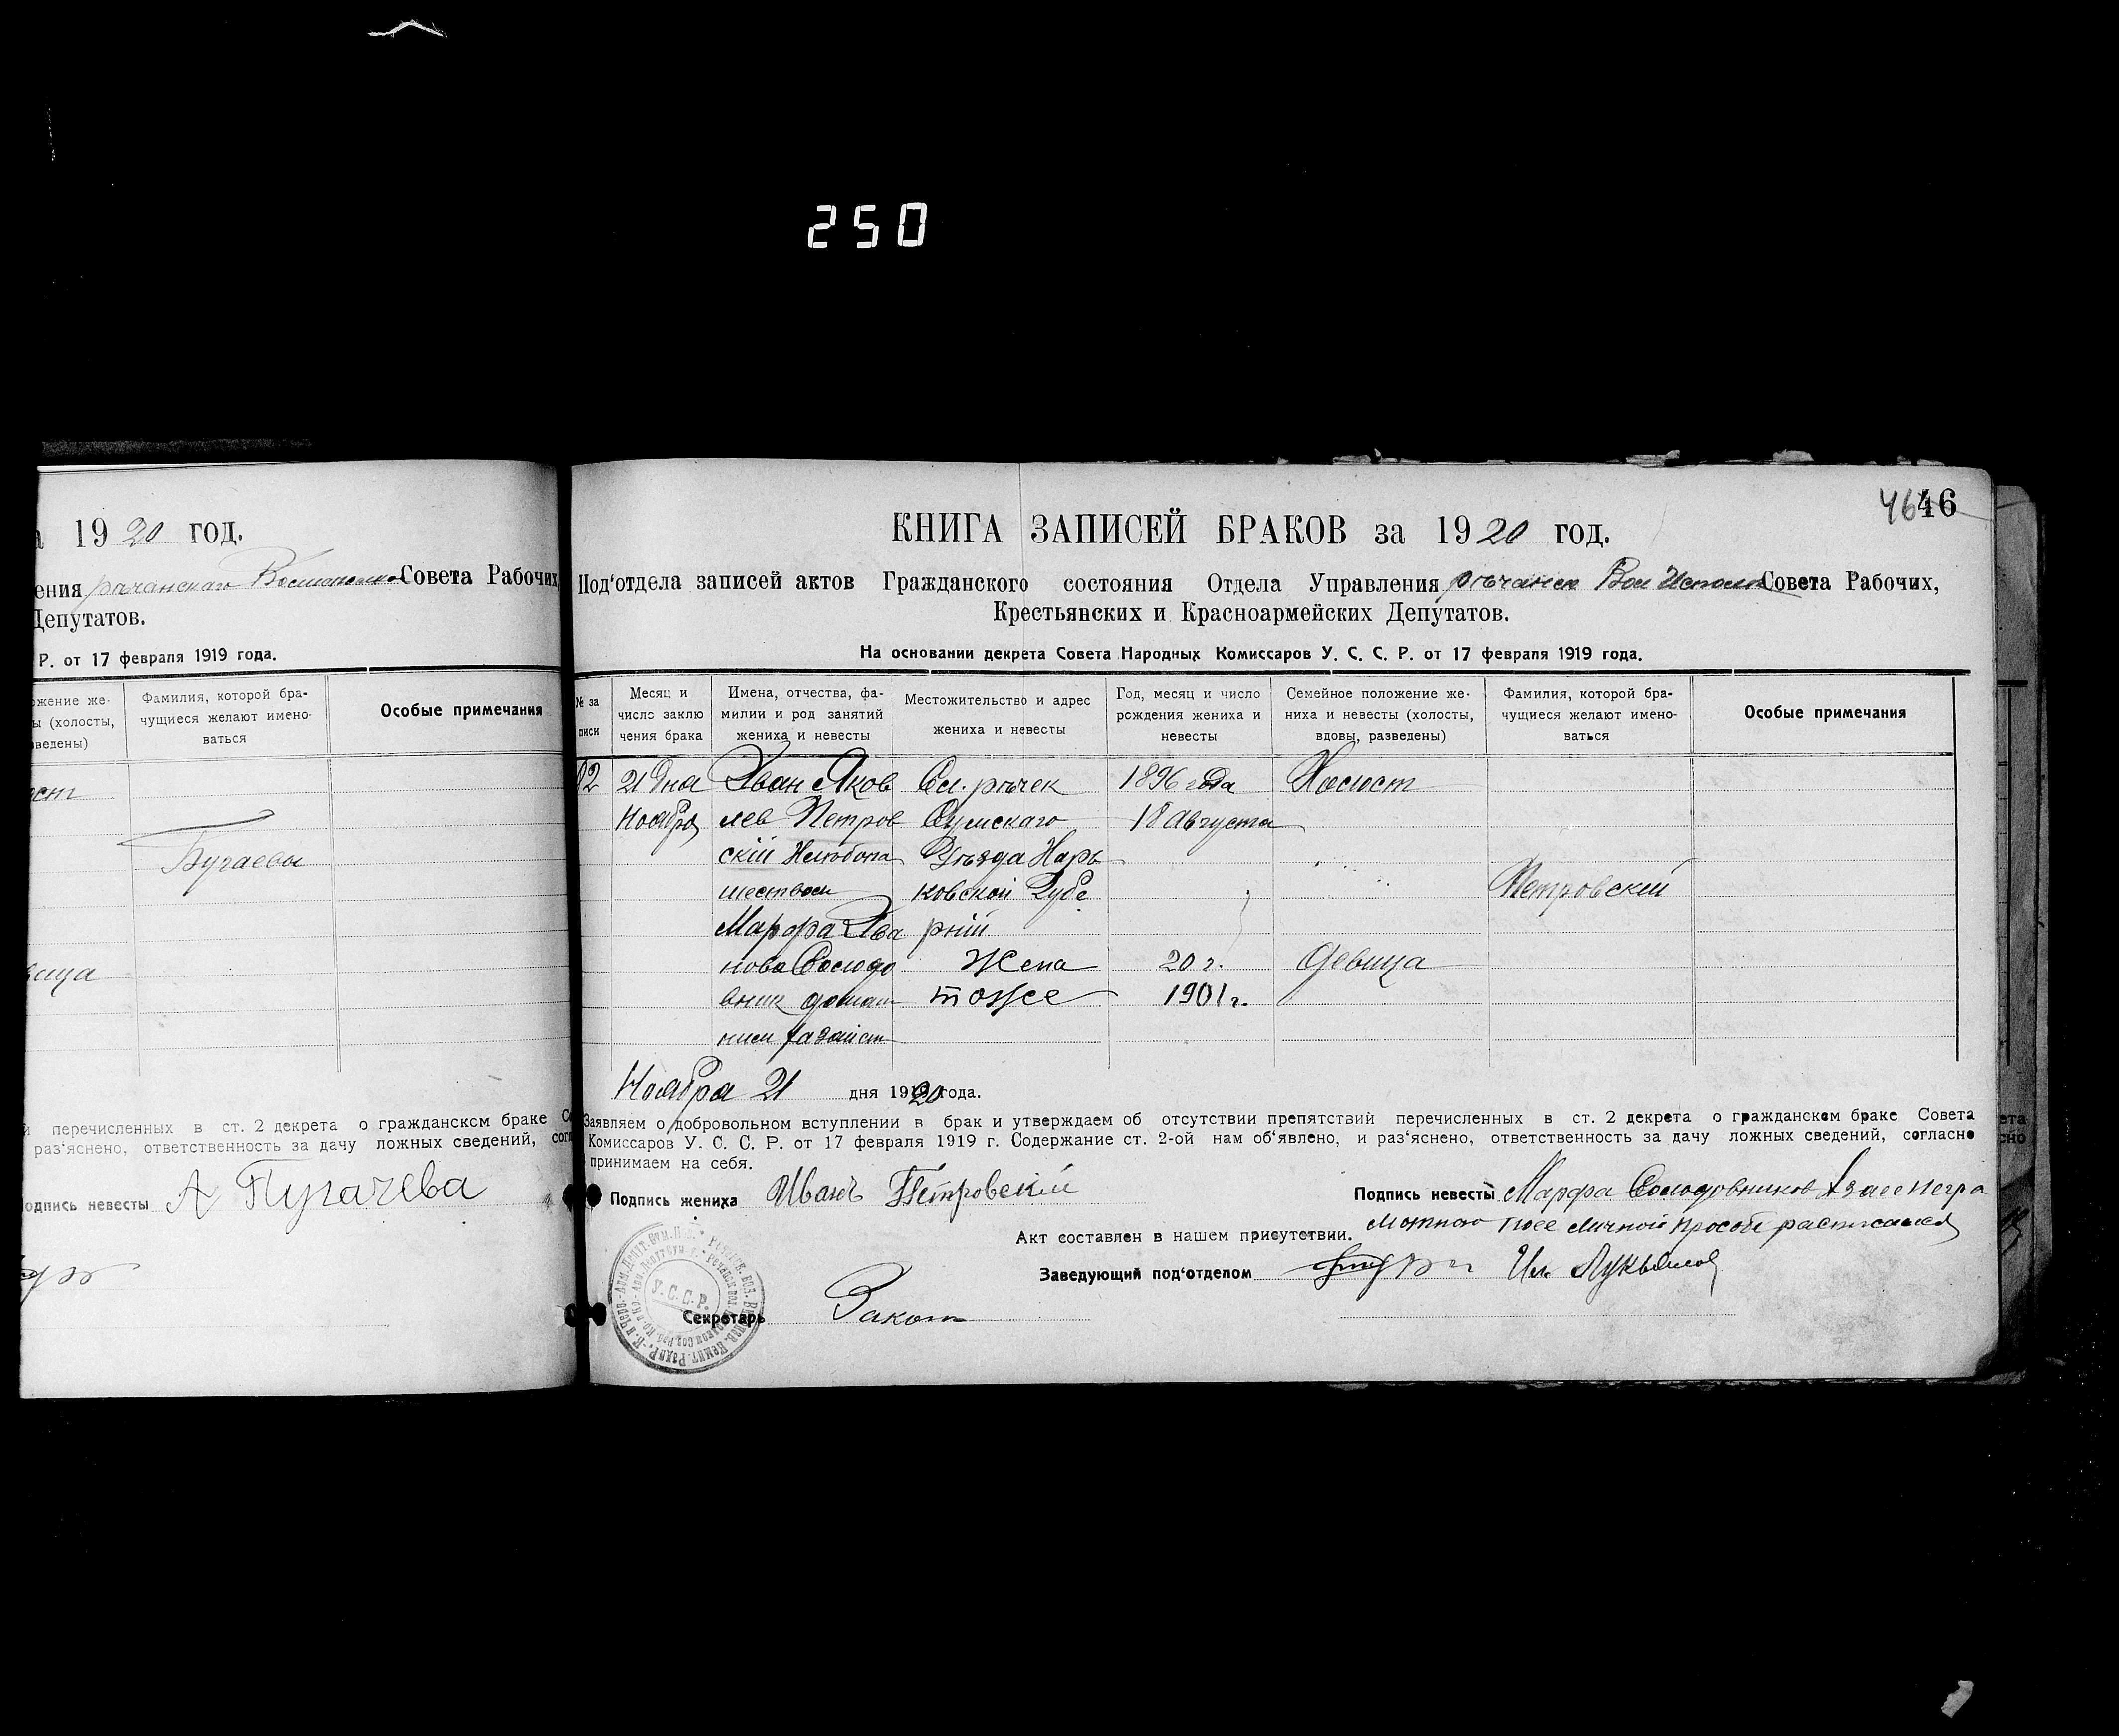 250
а 1920 год.
ения Совета Рабочих,
Депутатов.
Р. от 17 февраля 1919 года.
ожение же-
ы (холосты,
зведены)
Фамилия, которой бра-
чущиеся желают имено-
ваться
Особые примечания
ост
Бугаевы
вица
й перечисленных в ст. 2 декрета о гражданском браке Со
раз‘яснено, ответственность за дачу ложных сведений, согл
одпись невесты А Пугачева
46 46
КНИГА ЗАПИСЕЙ БРАКОВ за 1920 год.
Под‘отдела записей актов Гражданского состояния Отдела Управления Вол Исполк Совета Рабочих,
Крестьянских и Красноармейских Депутатов.
На основании декрета Совета Народных Комиссаров У. С. С. Р. от 17 февраля 1919 года.
№ за
писи
Месяц и
число заклю
чения брака
Имена, отчества, фа-
милии и род занятий
жениха и невесты
Местожительство и адрес
жениха и невесты
Год, месяц и число
рождения жениха и
невесты
Семейное положение же-
ниха и невесты (холосты,
вдовы, разведены)
Фамилия, которой бра-
чущиеся желают имено-
ваться
Особые примечания
02 21 дня Иван Яков Сл. рѣчек 1896 года Холост
Ноября лев Петров Сумскаго 18 августа
скій Хлѣбопа Уѣзда Харь
шеством ковской Губе Петровскій
Марфа Ива рніи
нова Солодо Жена 20 г. девица
вник домаш тоже 1901 г.
ним
Ноября 21 дня 1920 года.
Заявляем о добровольном вступлении в брак и утверждаем об отсутствии препятствий перечисленных в ст. 2 декрета о гражданском браке Совета
Комиссаров У. С. С. Р. от 17 февраля 1919 г. Содержание ст. 2-ой нам об‘явлено, и раз‘яснено, ответственность за дачу ложных сведений, согласно
принимаем на себя.
Подпись жениха Иванъ Петровский
Подпись невесты Марфа Солодовников
личной прозбе расписался
Акт составлен в нашем присутствии.
Заведующий под‘отделом
Секретарь
У.С.С.Р.